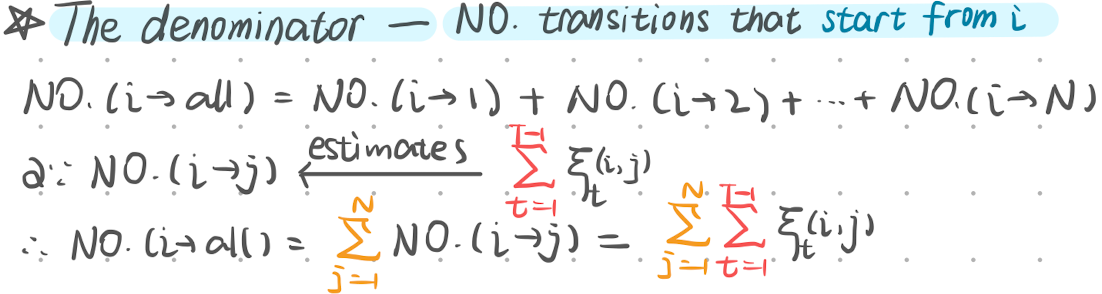 ☆ The denominator — NO. transitions that start from i
NO. (i→all) = NO. (i→1) + NO. (i→2) + ... + NO. (i→N)
a∵ NO. (i→j) ←estimates— ∑_{t=1}^{T-1} ξ_t(i,j)
∴ NO. (i→all) = ∑_{j=1}^{N} NO. (i→j) = ∑_{j=1}^{N} ∑_{t=1}^{T-1} ξ_t(i,j)